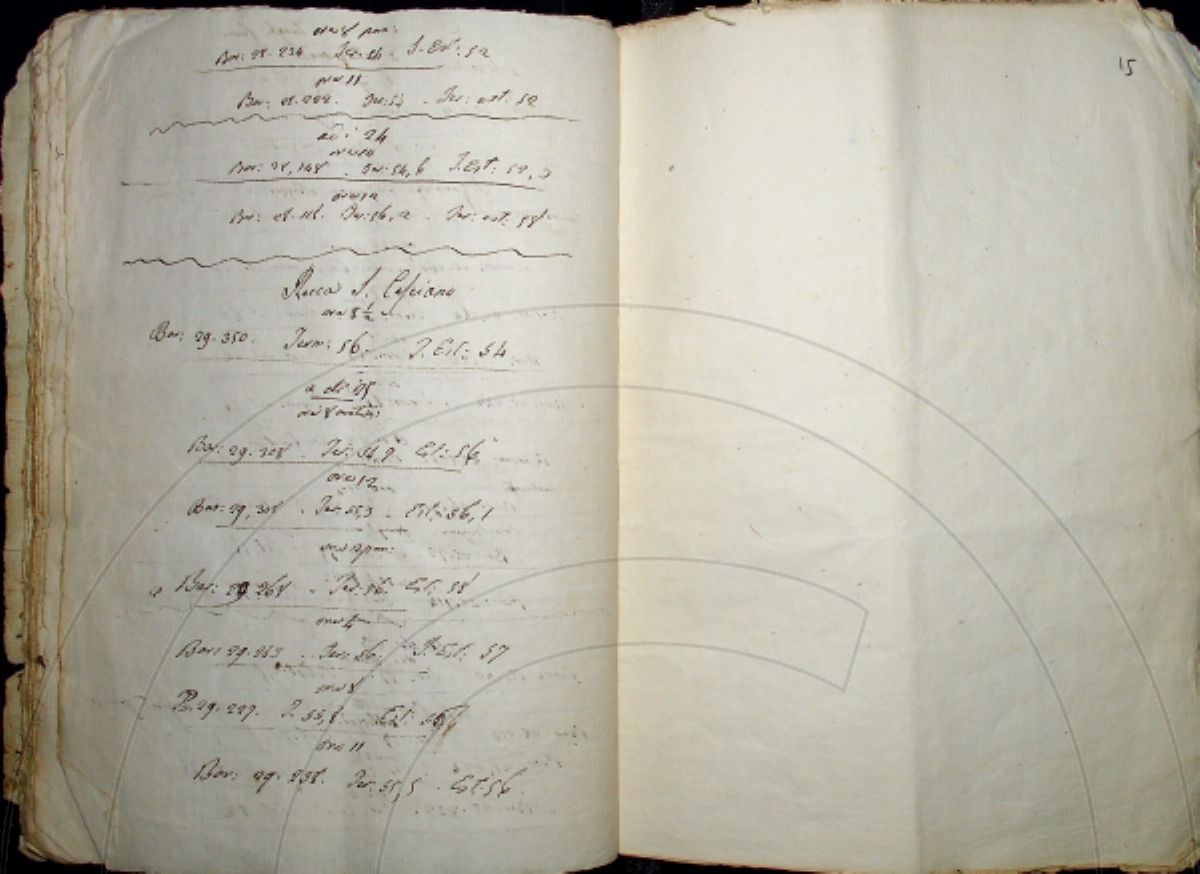 ore 8 pom:
Bar: 28. 234 Ter. 54. T. Est: 52
ore 11
Bar: 28. 222. Ter: 54 . Ter: est: 52
adi 24
ore 10
Bar: 28, 148 . Ter: 54, 6 T. Est: 52,
ore 12
Bar: 28. Ter: 56, 2 . Ter: est: 58
Rocca S. Casciano
ore 8 1/2
Bar: 29. 350. Term: 56. T. Est: 54
a di 28
ore 8 mattin:
Bar: 29. 308 . Ter: 54, 9 Est: 56
ore 12
Bar: 29, 308 . Ter: 55, 3 . Est: 56, 1
ore 2 pom:
Bar: 29 268 . Ter: 56. Est: 58
ore 4
Bar: 29. 263 . Ter: 56. T. Est: 57
ore 8
B. 29. 227. T. 55, 8 Est: 56
ore 11
Bar: 29. 238. Ter: 55, 5 . Est: 56.
15